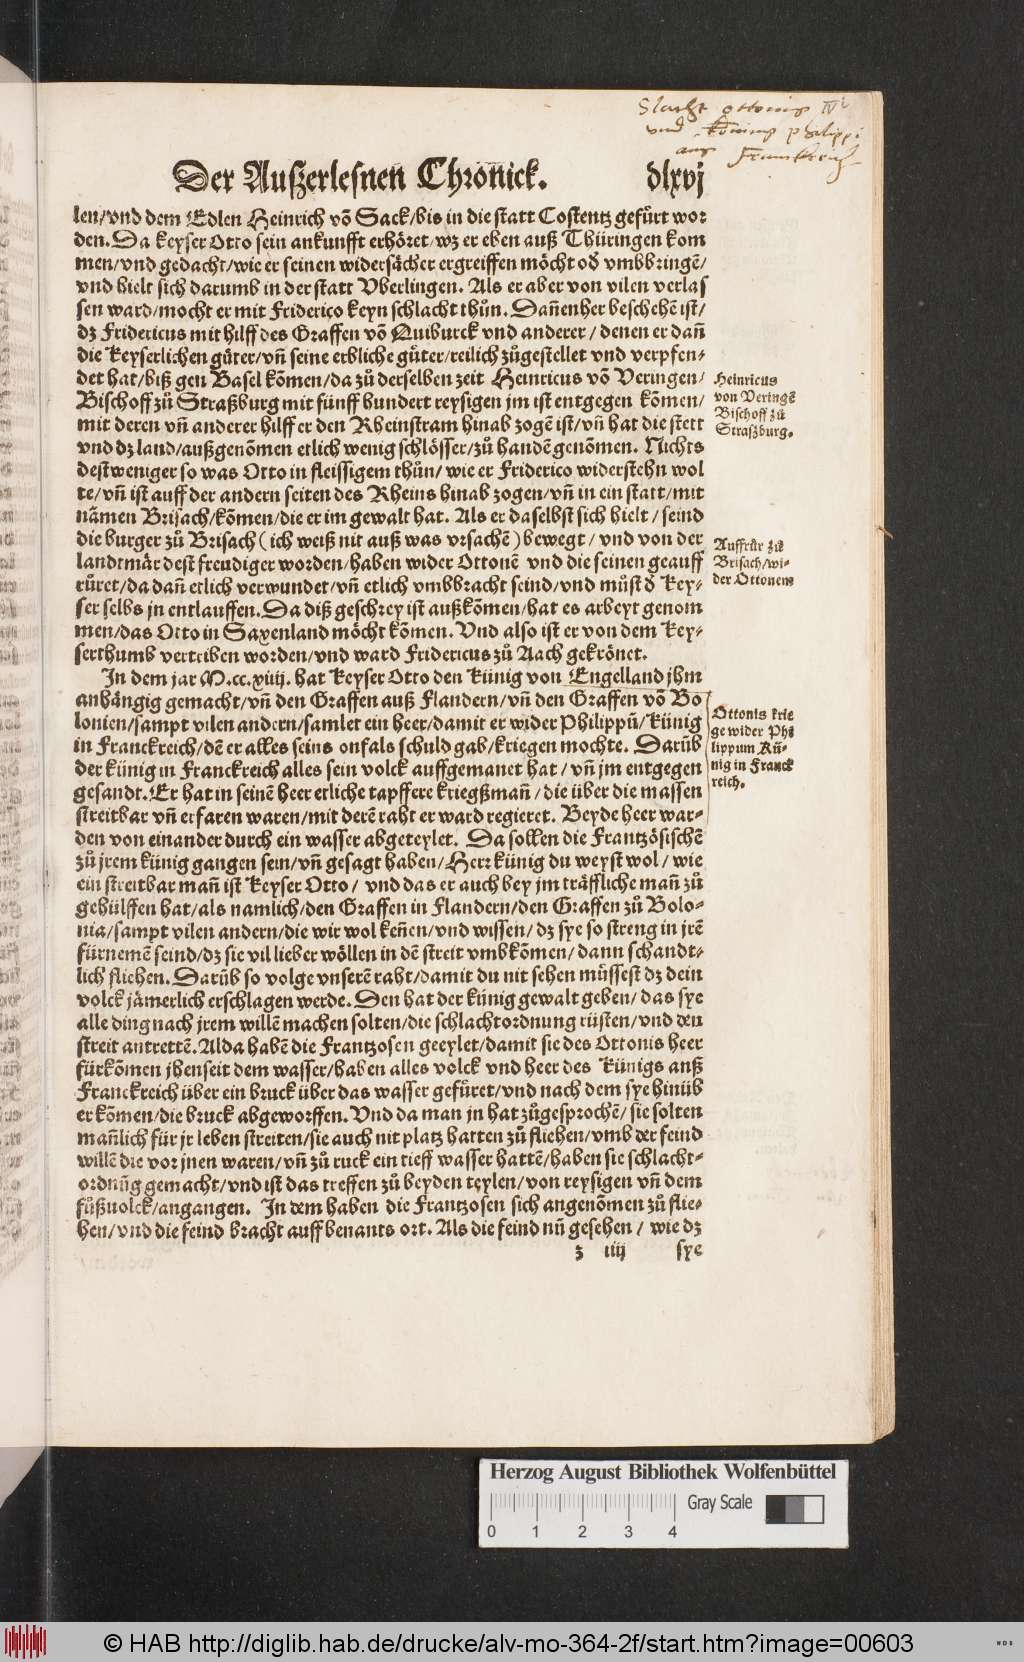 Slacht ottonis IV
vnd Könings philippi
aus Franckreich
Der Außerlesnen Chronick. dlxvj
len/vnd dem Edlen Heinrich võ Sack/bis in die statt Costentz gefürt wor
den. Da keyser Otto sein ankunfft erhöret/wz er eben auß Thüringen kom
men/vnd gedacht/wie er seinen widersächer ergreiffen möcht oď vmbbringẽ/
vnd hielt sich darumb in der statt Vberlingen. Als er aber von vilen verlas
sen ward/mocht er mit Friderico keyn schlacht thůn. Dañenher beschehẽ ist/
dz Fridericus mit hilff des Graffen võ Quiburck vnd anderer/denen er dañ
die Keyserlichen gůter/vñ seine erbliche gůter/reilich zůgestellet vnd verpfen⸗
det hat/biß gen Basel kõmen/da zů derselben zeit Heinricus võ Veringen/
Bischoff zů Straßburg mit fünff hundert reysigen jm ist entgegen kõmen/
mit deren vñ anderer hilff er den Rheinstram hinab zogẽ ist/vñ hat die stett
vnd dz land/außgenõmen etlich wenig schlösser/zů handẽ genõmen. Nichts
destweniger so was Otto in fleissigem thůn/wie er Friderico widerstehn wol
te/vñ ist auff der andern seiten des Rheins hinab zogen/vñ in ein statt/mit
nãmen Brisach/kõmen/die er im gewalt hat. Als er daselbst sich hielt/seind
die burger zů Brisach (ich weiß nit auß was vrsachẽ) bewegt/vnd von der
landtmär dest freudiger worden/haben wider Ottonẽ vnd die seinen geauff
růret/da dañ etlich verwundet/vñ etlich vmbbracht seind/vnd můst ď Key⸗
ser selbs jn entlauffen. Da diß geschrey ist außkõmen/hat es arbeyt genom
men/das Otto in Saxenland möcht kõmen. Vnd also ist er von dem Key⸗
serthumb vertriben worden/vnd ward Fridericus zů Aach gekrönet.
In dem jar M.cc.xiiij. hat Keyser Otto den Künig von Engelland jhm
anhängig gemacht/vñ den Graffen auß Flandern/vñ den Graffen võ Bo
lonien/sampt vilen andern/samlet ein heer/damit er wider Philippũ/Künig
in Franckreich/dẽ er alles seins onfals schuld gab/kriegen mochte. Darũb
der künig in Franckreich alles sein volck auffgemanet hat/vñ jm entgegen
gesandt. Er hat in seinẽ heer etliche tapffere kriegßmañ/die über die massen
streitbar vñ erfaren waren/mit derẽ raht er ward regieret. Beyde heer war⸗
den von einander durch ein wasser abgeteylet. Da sollen die Frantzösischẽ
zů jrem künig gangen sein/vñ gesagt haben/Herr künig du weyst wol/wie
ein streitbar mañ ist Keyser Otto/vnd das er auch bey jm träffliche mañ zů
gehülffen hat/als namlich/den Graffen in Flandern/den Graffen zů Bolo⸗
nia/sampt vilen andern/die wir wol keñen/vnd wissen/dz sye so streng in jrẽ
fürnemẽ seind/dz sie vil lieber wöllen in dẽ streit vmbkõmen/dann schandt⸗
lich fliehen. Darũb so volge vnserẽ raht/damit du nit sehen müssest dz dein
volck jämerlich erschlagen werde. Den hat der künig gewalt geben/das sye
alle ding nach jrem willẽ machen solten/die schlachtordnung rüsten/vnd den
streit antrettẽ. Alda habẽ die Frantzosen geeylet/damit sie des Ottonis heer
fürkõmen jhenseit dem wasser/haben alles volck vnd heer des Künigs auß
Franckreich über ein bruck über das wasser gefüret/vnd nach dem sye hinüb
er kõmen/die bruck abgeworffen. Vnd da man jn hat zůgesprochẽ/sie solten
mañlich für jr leben streiten/sie auch nit platz hatten zů fliehen/vmb der feind
willẽ die vor jnen waren/vñ zů ruck ein tieff wasser hattẽ/haben sie schlacht⸗
ordnũg gemacht/vnd ist das treffen zů beyden teylen/von reysigen vñ dem
fůßuolck/angangen. In dem haben die Frantzosen sich angenõmen zů flie⸗
hen/vnd die feind bracht auff benants ort. Als die feind nũ gesehen/wie dz
z iiij sye
Heinricus
von Veringẽ
Bischoff zů
Straßburg.
Auffrůr zů
Brisach/wi⸗
der Ottonem
Ottonis krie
ge wider Phi
lippum Kü⸗
nig in Franck
reich.
Herzog August Bibliothek Wolfenbüttel
Gray Scale
0 1 2 3 4
© HAB http://diglib.hab.de/drucke/alv-mo-364-2f/start.htm?image=00603